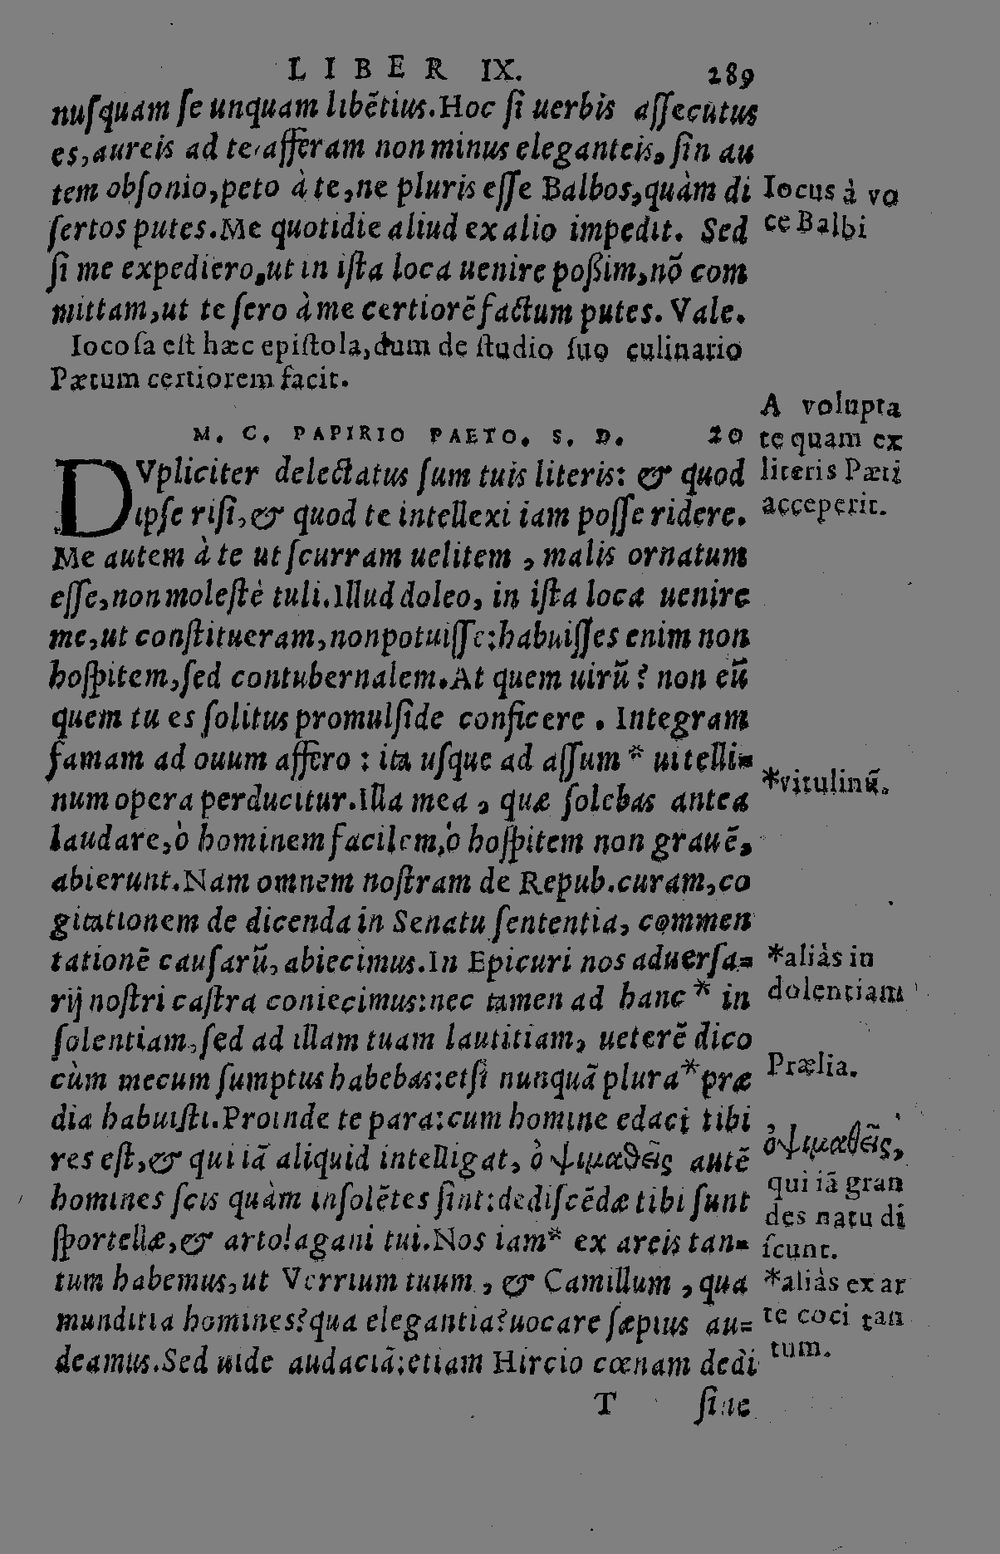 LIBER IX. 289
nuſquam ſe unquam libẽtius. Hoc ſi uerbis aſſecutus
es, aureis ad te afferam non minus eleganteis. ſin au
tem obſonio, peto à te, ne pluris eſſe Balbos, quàm di
ſertos putes. Me quotidie aliud ex alio impedit. Sed
ſi me expediero, ut in iſta loca uenire poßim, nõ com
mittam, ut te ſero à me certiorẽ factum putes. Vale.
Iocoſa eſt hæc epiſtola, dum de ſtudio ſuo culinario
Pætum certiorem facit.
M. C. PAPIRIO PAETO. S. D. 20
DVpliciter delectatus ſum tuis literis: & quod
ipſe riſi, & quod te intellexi iam poſſe ridere.
Me autem à te ut ſcurram uelitem, malis ornatum
eſſe, non moleſtè tuli. Illud doleo, in iſta loca uenire
me, ut conſtitueram, non potuiſſe: habuiſſes enim non
hoſpitem, ſed contubernalem. At quem uirũ? non eũ
quem tu es ſolitus promulſide conficere. Integram
famam ad ouum affero: ita uſque ad aſſum * uitelli=
num opera perducitur. Illa mea, quæ ſolebas antea
laudare, ò hominem facilem, ò hoſpitem non grauẽ,
abierunt. Nam omnem noſtram de Repub. curam, co
gitationem de dicenda in Senatu ſententia, commen
tationẽ cauſarũ, abiecimus. In Epicuri nos aduerſa=
rij noſtri caſtra coniecimus: nec tamen ad hanc * in
ſolentiam, ſed ad illam tuam lautitiam, ueterẽ dico
cùm mecum ſumptus habebas: etſi nunquã plura * præ
dia habuiſti. Proinde te para: cum homine edaci tibi
res eſt, & qui iã aliquid intelligat, ὀψιμαθεῖς autẽ
homines ſcis quàm inſolẽtes ſint: dediſcẽdæ tibi ſunt
ſportellæ, & artolagani tui. Nos iam * ex areis tan=
tum habemus, ut Verrium tuum, & Camillum, qua
munditia homines? qua elegantia? uocare ſæpius au=
deamus. Sed uide audaciã: etiam Hircio cœnam dedi
T ſine
Iocus à vo
ce Balbi
A volupta
te quam ex
literis Pæti
acceperit.
*vitulinũ.
*aliàs in
dolentiam
Prælia.
ὀψιμαθεῖς,
qui iã gran
des natu di
ſcunt.
*aliàs ex ar
te coci tan
tum.